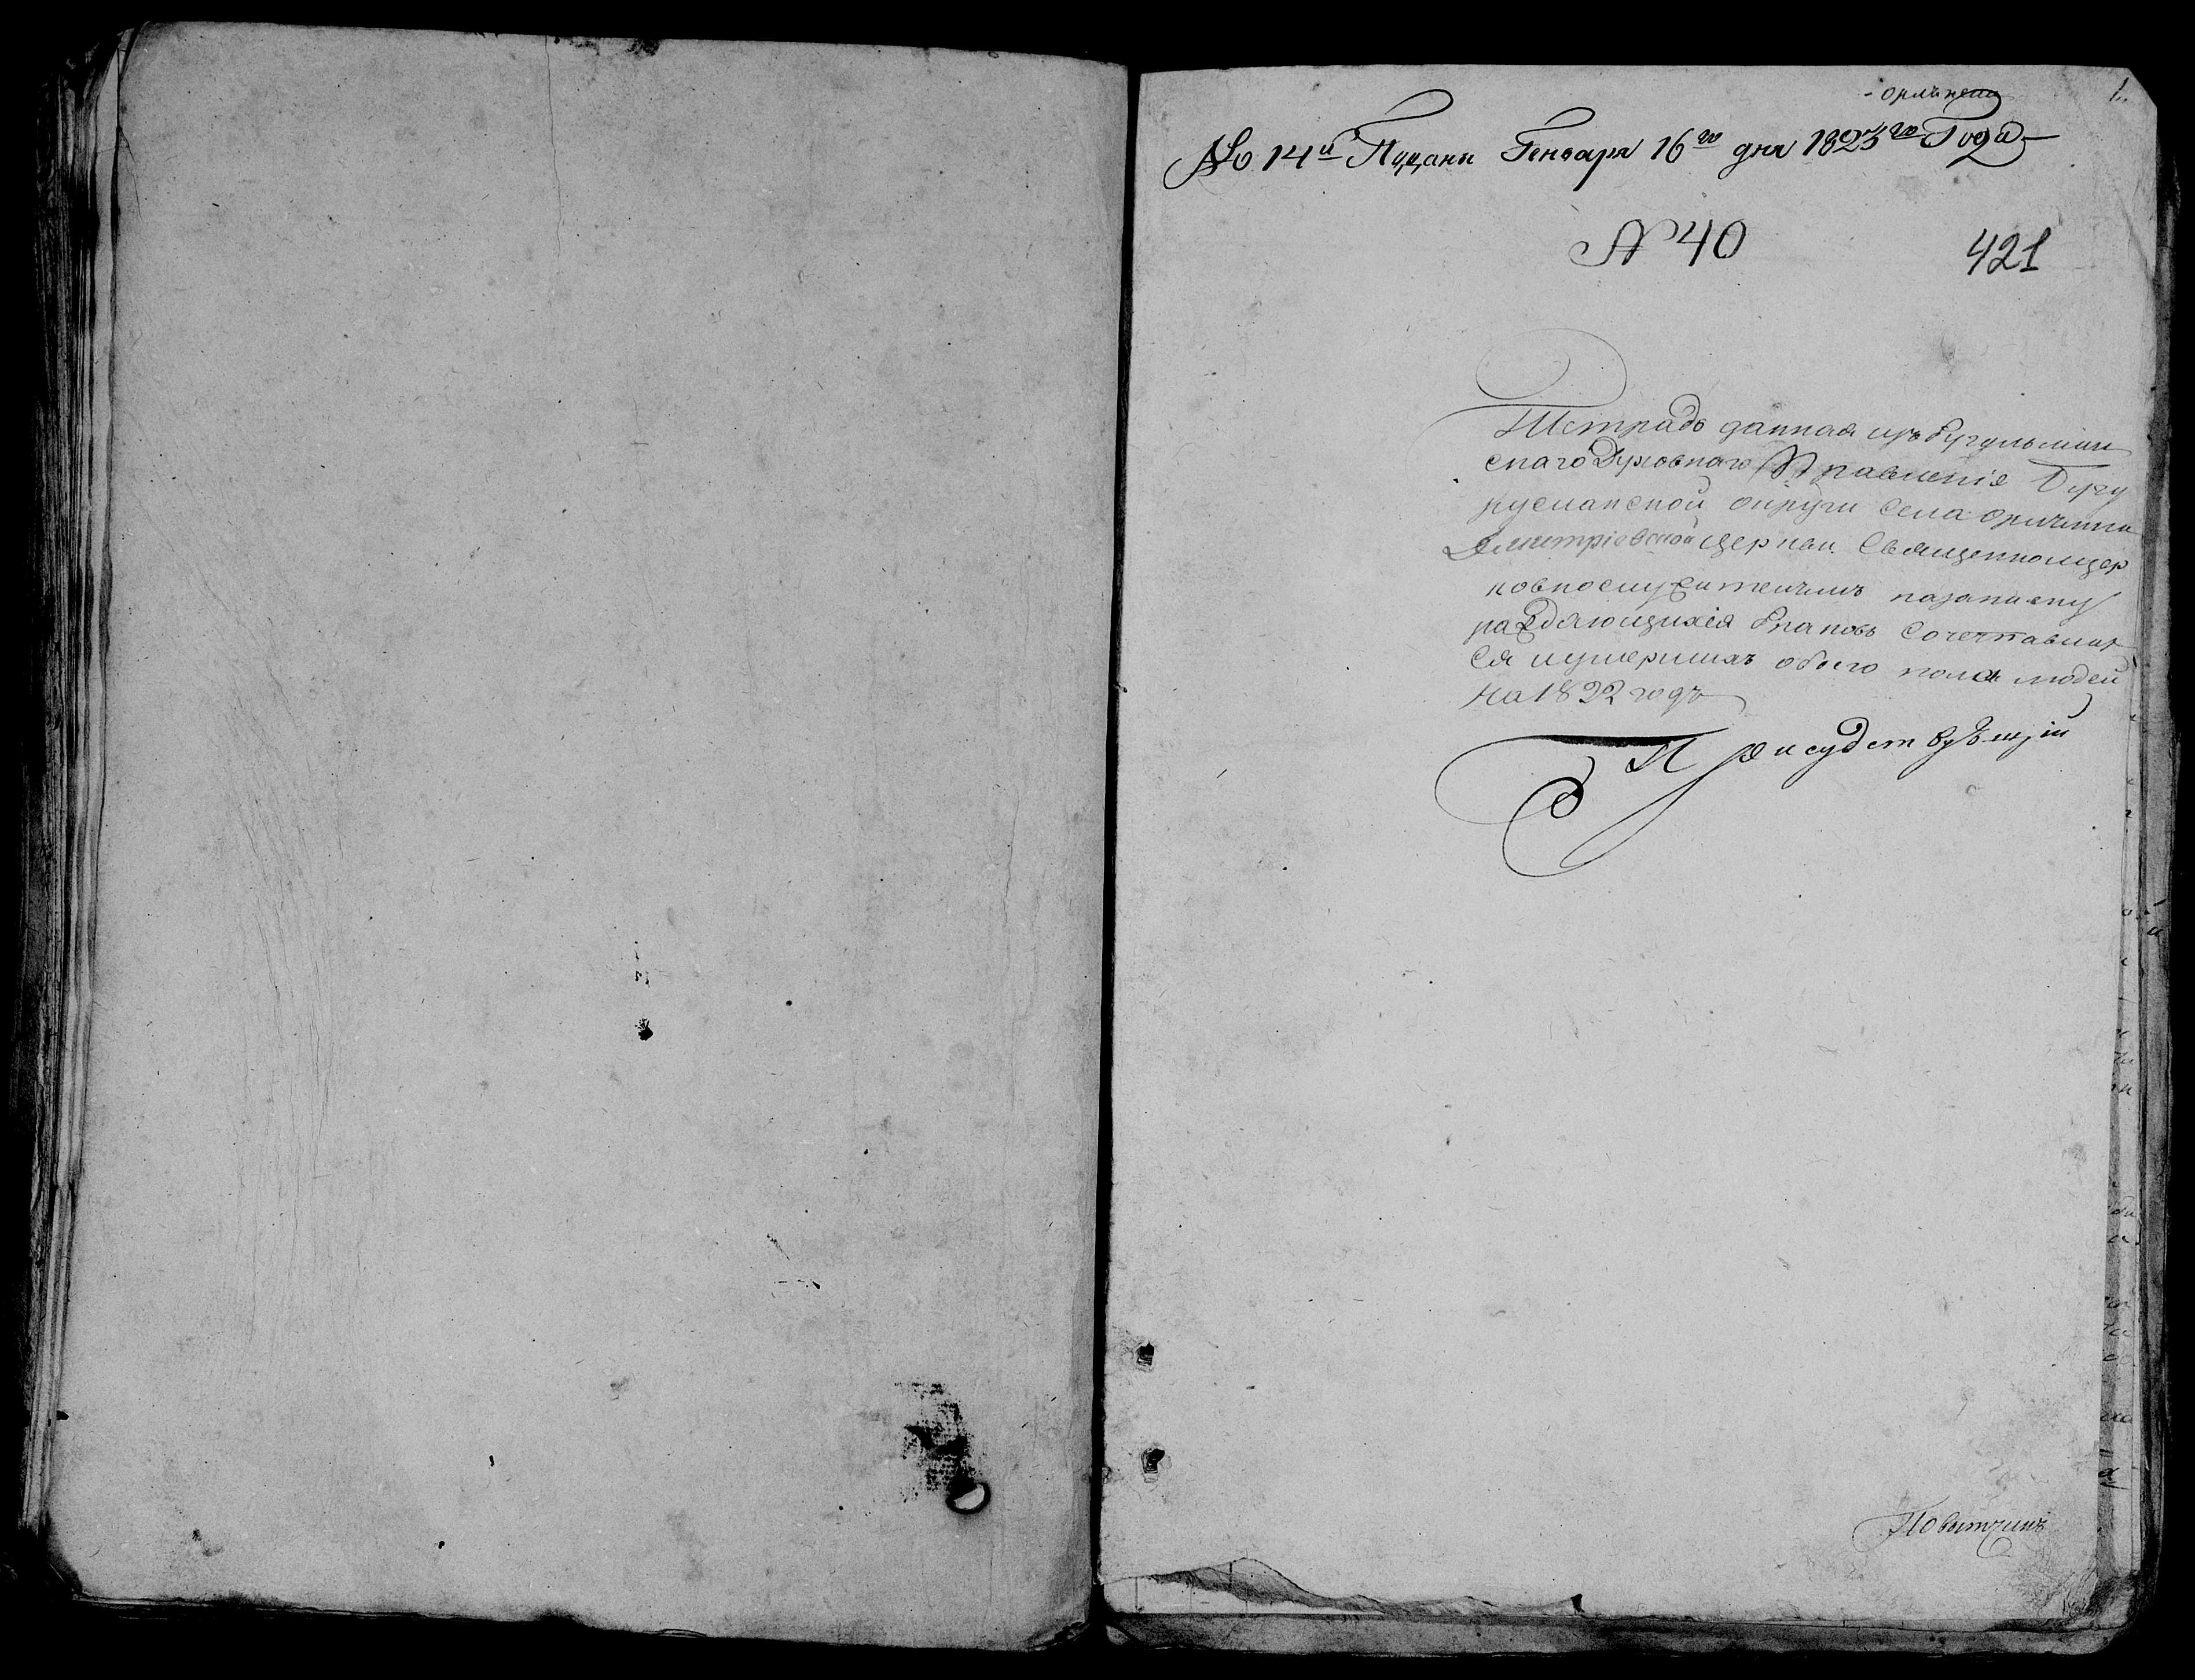 1.
№ 14й Подана Генваря 16го дня 1823го Года
№ 40
421
Тетрадь данная изъ бугульмин
скаго Духовнаго Правленія Бугу
русланской округи села
Димитріевской церкви Священноцер
ковнослужителямъ назаписку
раждающихся браковъ Сочетавших
ся иумершихъ обоего пола людей
на 1822 годъ
Присудствующій
Повытчикъ